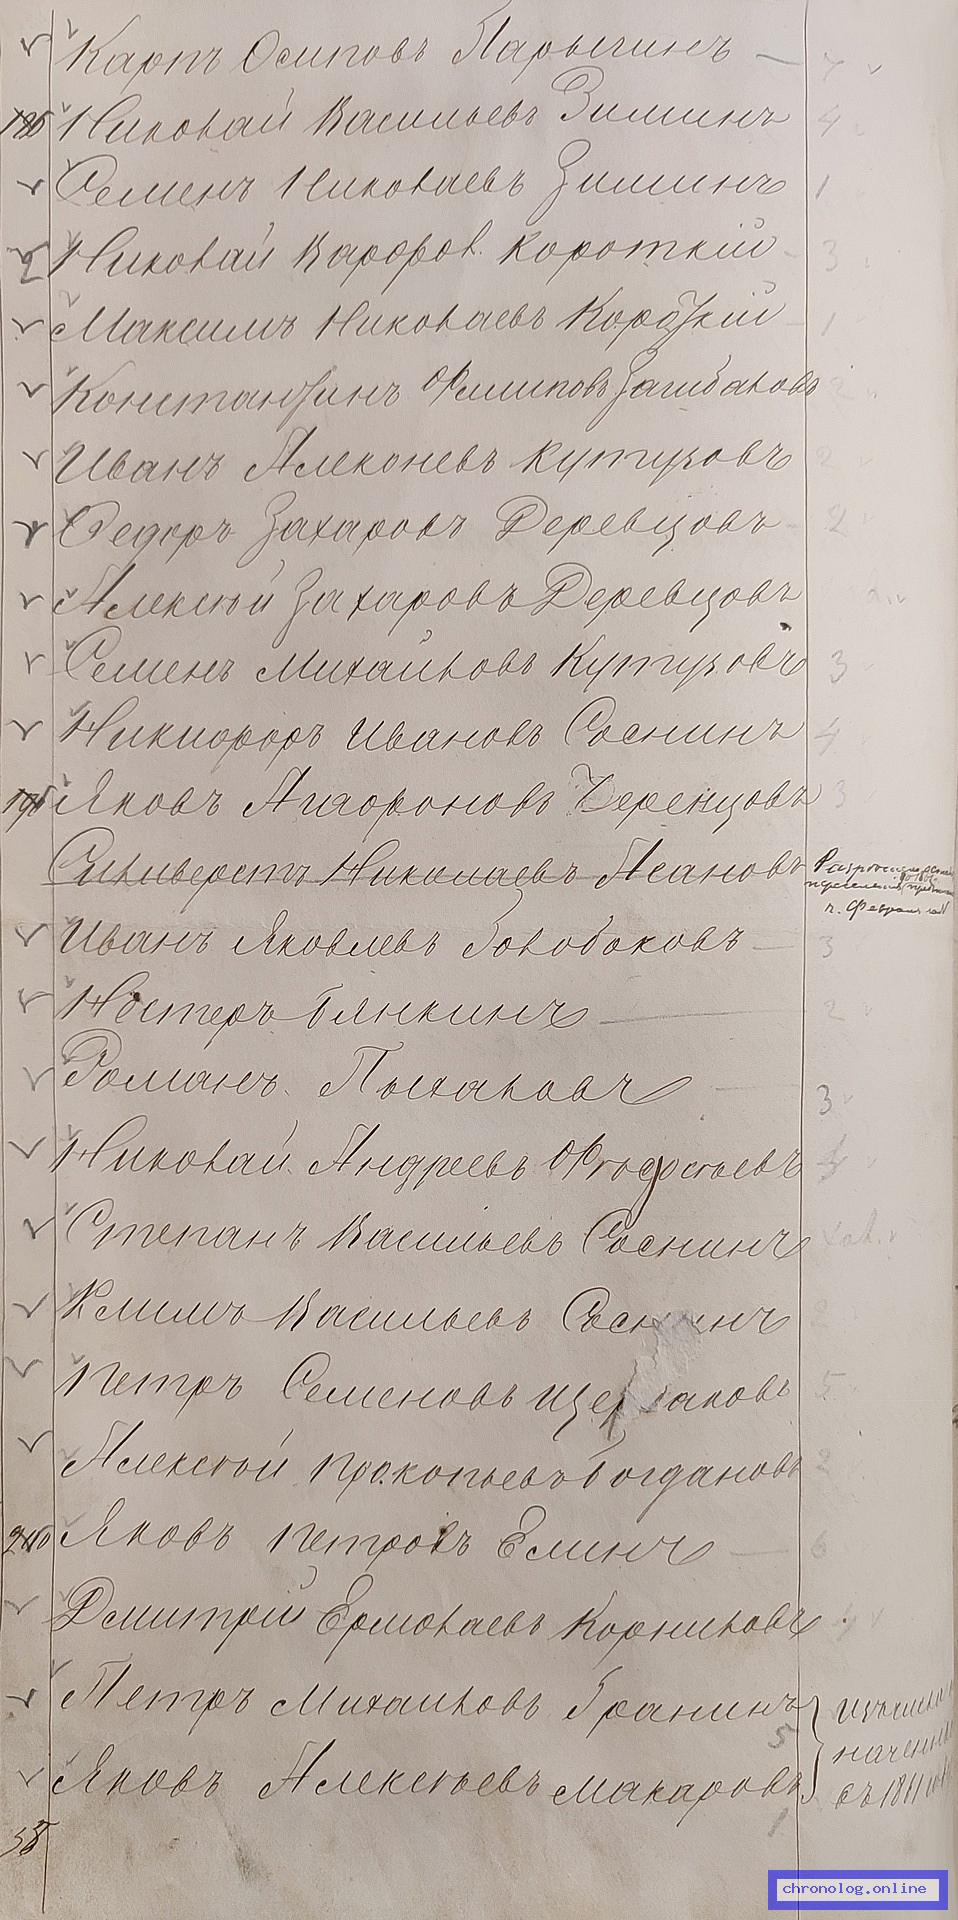 Карпъ Осиповъ Парыгинъ —
Николай Васильевъ Зиминъ 4
Семенъ Николаевъ Зиминъ 1
Николай Карфов. Короткій 3
Максимъ Николаевъ Короткій 1
Константинъ Филиповъ 2
Иванъ Алексѣевъ Кутузовъ 2
Федоръ Захаровъ Деревцовъ 2
Алексѣй Захаровъ Деревцовъ
Семенъ Михайловъ Кутузовъ 3
Никифоръ Ивановъ Соснинъ 4
195 Яковъ Агафоновъ Черенцовъ 3
Сильверстъ Николаевъ Асановъ
Иванъ Яковлевъ Голобоковъ — 3
Нестеръ Бянкинъ 2
Романъ Пыхаловъ 3
Николай Андреевъ
Степанъ Васильевъ Соснинъ
Климъ Васильевъ Соснинъ 2
Петръ Семеновъ 5
Алексѣй Прокопьевъ Богдановъ 2
Яковъ Петровъ Епинъ — 6
Дмитрій Ермолаевъ Корниловъ
Петръ Михайловъ Гранинъ
5
Яковъ Алексѣевъ Макаровъ
1
chronolog.online